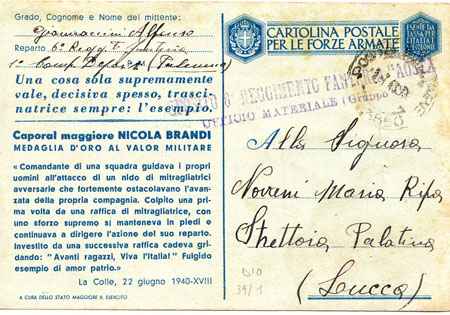 Grado, Cognome e Nome del mittente:
Reparto 6° Regg. Fanteria
1° Comp. Deposito (Palermo)
Una cosa sola supremamente
vale, decisiva spesso, trasci-
natrice sempre: l'esempio.
Caporal maggiore NICOLA BRANDI
MEDAGLIA D'ORO AL VALOR MILITARE
«Comandante di una squadra guidava i propri
uomini all'attacco di un nido di mitragliatrici
avversarie che fortemente ostacolavano l'avan-
zata della propria compagnia. Colpito una pri-
ma volta da una raffica di mitragliatrice, con
uno sforzo supremo si manteneva in piedi e
continuava a dirigere l'azione del suo reparto.
Investito da una successiva raffica cadeva gri-
dando: "Avanti ragazzi, Viva l'Italia!" Fulgido
esempio di amor patrio.»
La Colle, 22 giugno 1940-XVIII
A CURA DELLO STATO MAGGIORE R. ESERCITO
CARTOLINA POSTALE
PER LE FORZE ARMATE
ESENTE DA
TASSA PER
L'ITALIA E
COLONIE
DEPOSITO 6° REGGIMENTO FANTERIA "AOSTA"
UFFICIO MATERIALE
Alla Signora
Maria Ripa
Strettoia Palatina
(Lucca)
DIO
39/1